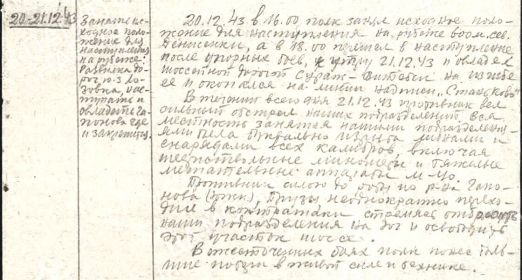 20-21.12.43
Занять ис-
ходное поло-
жение для
наступления
на рубеже:
Развилка до-
рог, ю-з Ло-
зовка, нас-
тупать и
овладеть Га-
поново где
и закрепится.
20.12.43 в 16.00 полк занял исходное поло-
жение для наступления на рубеже
а в 18.00 перешел в наступление
после упорных боев, к утру 21.12.43 овладел
шоссейной дорогой Сураж-Витебск на изгибе
ее и окопался на линии надписи "Стаськово"
В течении всего дня 21.12.43 противник вел
сильный обстрел наших подразделений. Вся
местность занятая нашими подразделени-
ями была буквально изрыта минами и
снарядами всех калибров включая
шестиствольные минометы и тяжелые
метательные аппараты М-40.
Противник силою до роты из р-на Гапо-
ново Грузды неоднократно перехо-
дил в контратаки стремясь отбросить
наши подразделения на юг и освободить
этот участок шоссе.
В ожесточенных боях полк понес боль-
шие потери в живой силе и технике.